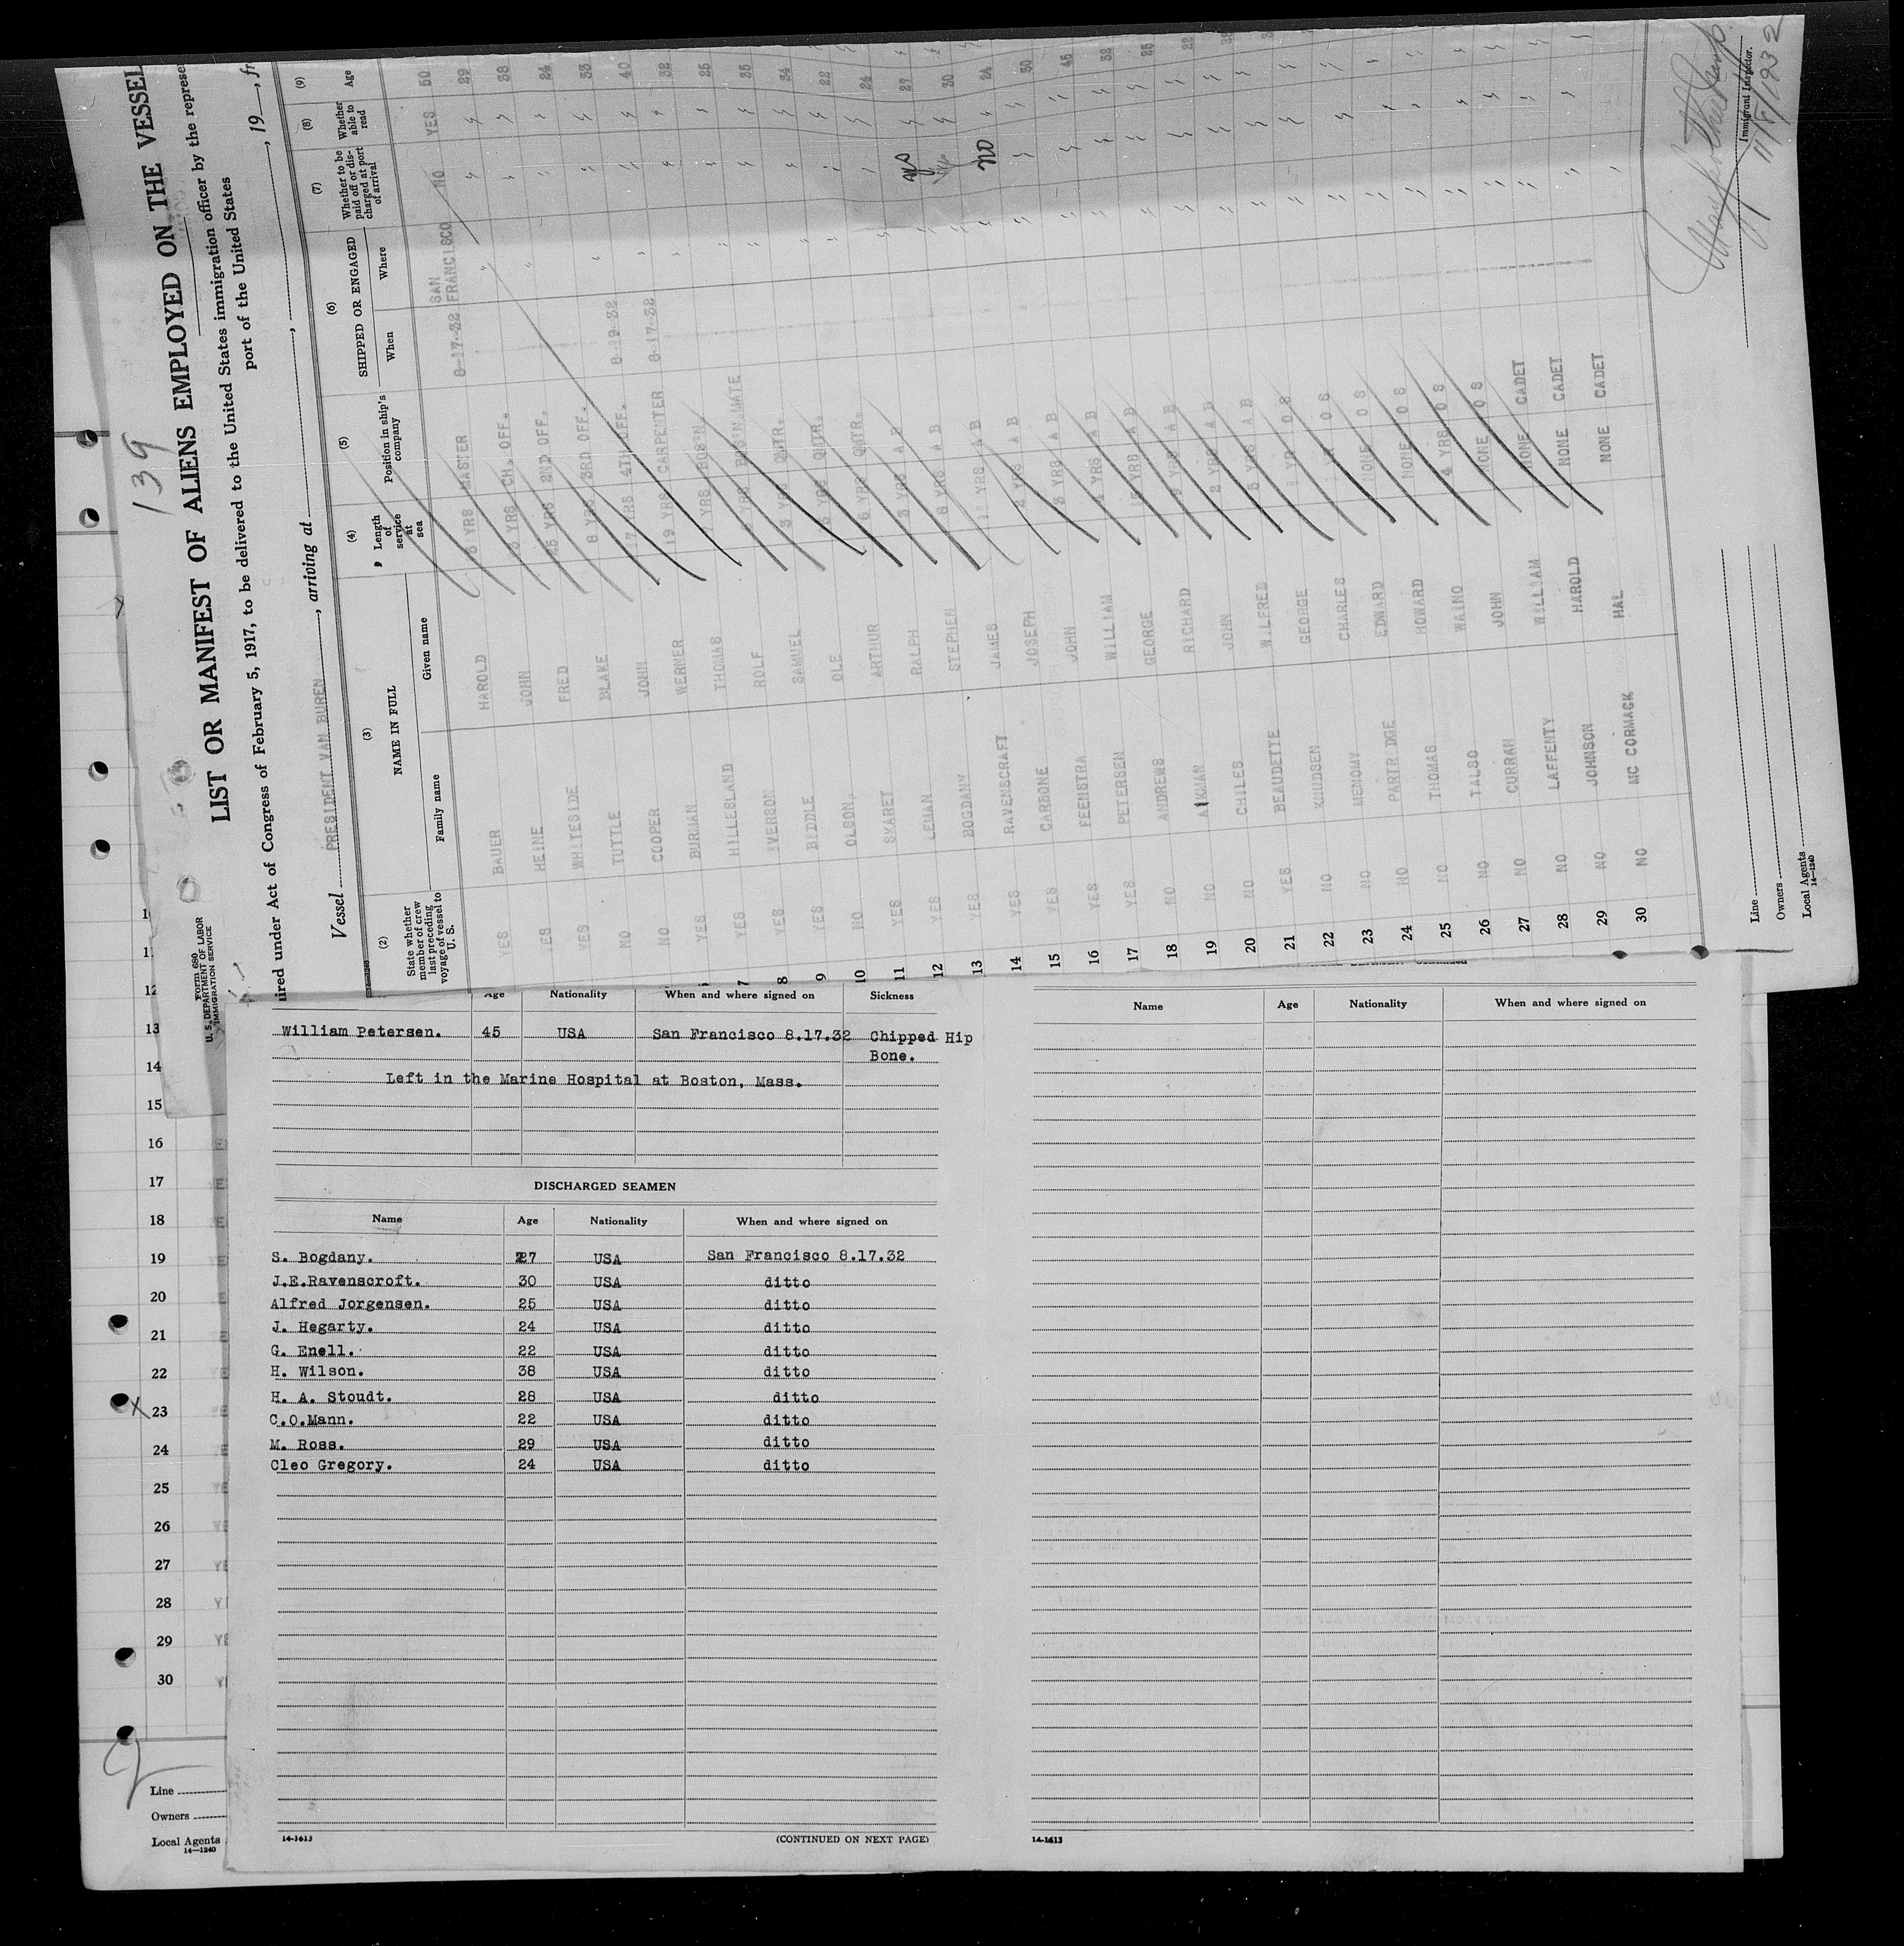 139
Form 680
U. S. DEPARTMENT OF LABOR
IMMIGRATION SERVICE
LIST OR MANIFEST OF ALIENS EMPLOYED ON THE VESSEL
ired under Act of Congress of February 5, 1917, to be delivered to the United States immigration officer by the represe
port of the United States
Vessel PRESIDENT VAN BUREN, arriving at , 19 , fr
(2) (3) (4) (5) (6) (7) (8) (9)
State whether member of crew last preceding voyage of vessel to U. S.
NAME IN FULL
Family name Given name
Length of service at sea
Position in ship's company
SHIPPED OR ENGAGED
When Where
Whether to be paid off or discharged at port of arrival
Whether able to read
Age
YES BAUER HAROLD MASTER 8-17-32 SAN FRANCISCO NO YES 50
YES HEINE JOHN CH. OFF. 29
YES WHITESIDE FRED 2ND OFF. 38
NO TUTTLE BLAKE 8 YRS 3RD OFF. 24
NO COOPER JOHN 4TH OFF. 8-19-32 33
YES BURMAN WERNER 19 YRS CARPENTER 8-17-32 40
7 YES HILLESLAND THOMAS BOS'N. 32
8 YES IVERSON ROLF BOS'N.MATE 25
9 YES BIDDLE SAMUEL 3 YRS QMTR. 35
10 NO OLSON, OLE QMTR. 34
11 YES SKARET ARTHUR 6 YRS QMTR. 22
12 YES LEMAN RALPH 3 YRS A B 24
13 YES BOGDANY STEPHEN 8 YRS A B yes 27
14 YES RAVENSCRAFT JAMES YRS A B 30
15 YES CARBONE JOSEPH 2 YRS A B no 24
16 YES FEENSTRA JOHN 3 YRS A B 30
17 YES PETERSEN WILLIAM YRS A B 45
18 NO ANDREWS GEORGE YRS A B 32
19 NO AIKMAN RICHARD 9 YRS A B 25
20 NO CHILES JOHN 2 YRS A B 22
21 YES BEAUDETTE WILFRED 5 YRS A B
22 NO KNUDSEN GEORGE 1 YR O S
23 NO MENOMY CHARLES YR O S
24 NO PARTRIDGE EDWARD NONE O S
25 NO THOMAS HOWARD NONE O S
26 NO TALSO WAINO 4 YRS O S
27 NO CURRAN JOHN NONE O S
28 NO LAFFENTY WILLIAM NONE CADET
29 NO JOHNSON HAROLD NONE CADET
30 NO MC CORMACK HAL NONE CADET
Immigrant Inspector.
11/5/1932
Line
Owners
Local Agents
14—1240
Age Nationality When and where signed on Sickness
William Petersen. 45 USA San Francisco 8.17.32 Chipped Hip
Bone.
Left in the Marine Hospital at Boston, Mass.
DISCHARGED SEAMEN
Name Age Nationality When and where signed on
S. Bogdany. 27 USA San Francisco 8.17.32
J.E.Ravenscroft. 30 USA ditto
Alfred Jorgensen. 25 USA ditto
J. Hegarty. 24 USA ditto
G. Enell. 22 USA ditto
H. Wilson. 38 USA ditto
H. A. Stoudt. 28 USA ditto
C.O.Mann. 22 USA ditto
M. Ross. 29 USA ditto
Cleo Gregory. 24 USA ditto
14-1613
(CONTINUED ON NEXT PAGE)
Name Age Nationality When and where signed on
14-1613
12
13
14
15
16
17
18
19
20
21
22
23
24
25
26
27
28
29
30
Line
Owners
Local Agents
14—1240